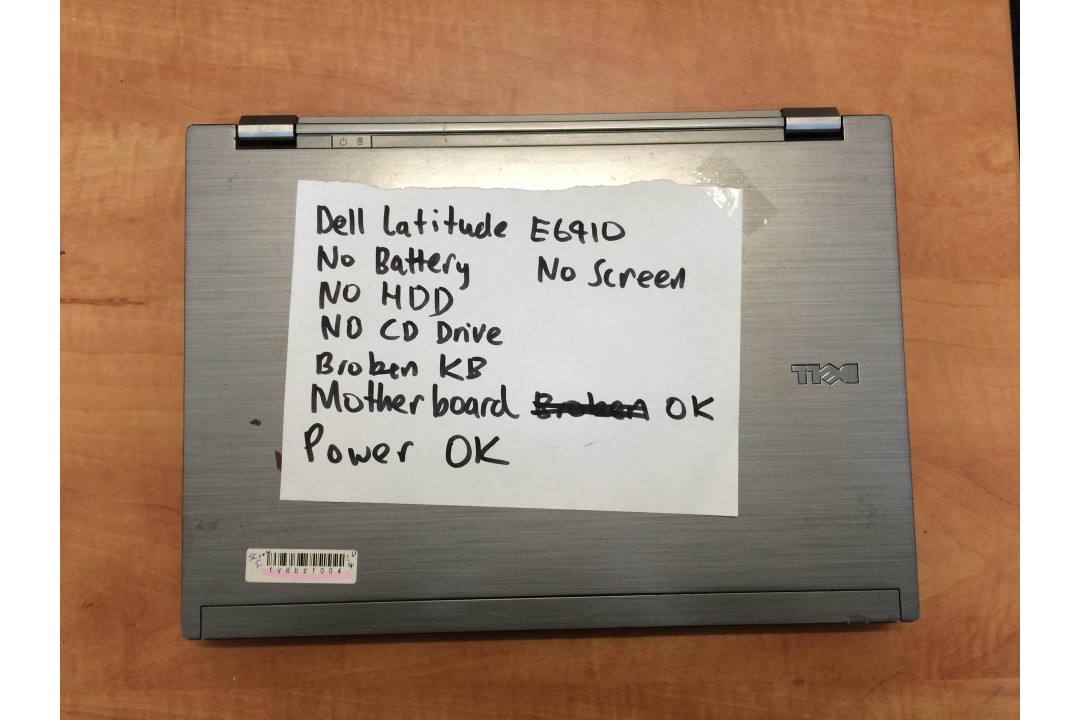 Dell Latitude E6410
No Battery No Screen
NO HDD
NO CD Drive
Broken KB
Motherboard Broken OK
Power OK
DELL
rydbzf004